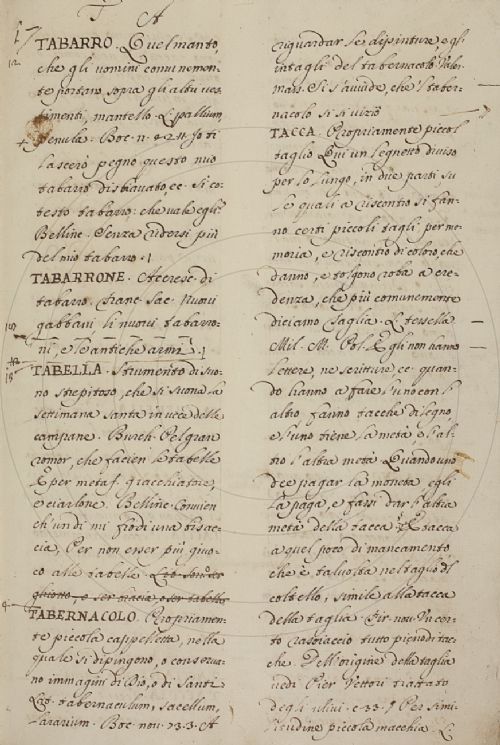 T A
TABARRO. Quel manto,
che gli uomini comunemen=
te portano sopra gli altri ves=
timenti, mantello. L. pallium,
penula. Boc. n. 72.11. Io ti
lascerò pegno questo mio
tabarro di sbiavato, ec. Si co=
testo tabarro: che vale egli?
Belline. Senza ridorsi più
del mio tabarro.
TABARRONE. Accresc. di
tabarro. Franc. Sac. Nuovi
gabbani, li nuovi tabarro=
ni, e le antiche armi.
TABELLA. Strumento di suo=
no strepitoso, che si suona la
settimana santa in vece delle
campane. Burch. Pel gran
romor, che facien le tabelle
E per metaf. gracchiatore,
e ciarlone. Belline. Convien
ch' un dì mi ficchi una
cia, Per non esser più giuo=
co alle tabelle.
TABERNACOLO. Propriamen=
te piccola cappelletta, nella
quale si dipingono, o conserva=
no immagini di Dio, o di Santi
Lat. tabernaculum, sacellum,
lararium. Boc. nov. 73.3. A
riguardar le dipinture, e gl'
intagli del tabernacolo.
mars. Si s' avvide, che 'l taber=
nacolo si
TACCA. Propriamente piccol
taglio. Qui un legnetto diviso
per lo lungo, in due parti su
le quali a riscontro si fan=
no certi piccoli tagli per me=
moria, e riscontro di coloro, che
danno, e tolgono roba a cre=
denza, che più comunemente
diciamo Taglia. L. tersella.
Mil. M. Pol. Egli non hanno
lettere, nè scritture ec quan=
do hanno a fare l' uno con l'
altro fanno tacche di legno,
e l' uno tiene la metà, e l' al=
tro l' altra metà. Quando uno
dee pagar la moneta egli
la paga, e fassi dar l' altra
metà della tacca. E tacca
a quel poco di mancamento
che è talvolta nel taglio del
coltello, simile alla tacca
della taglia. Fir. nov. Un cer=
to rasciaccio tutto pieno di tac=
che. Dell' origine della taglia
vedi Pier Vettori trattato
degli ulivi. c. 33. Per simi=
litudine piccola macchia. L.